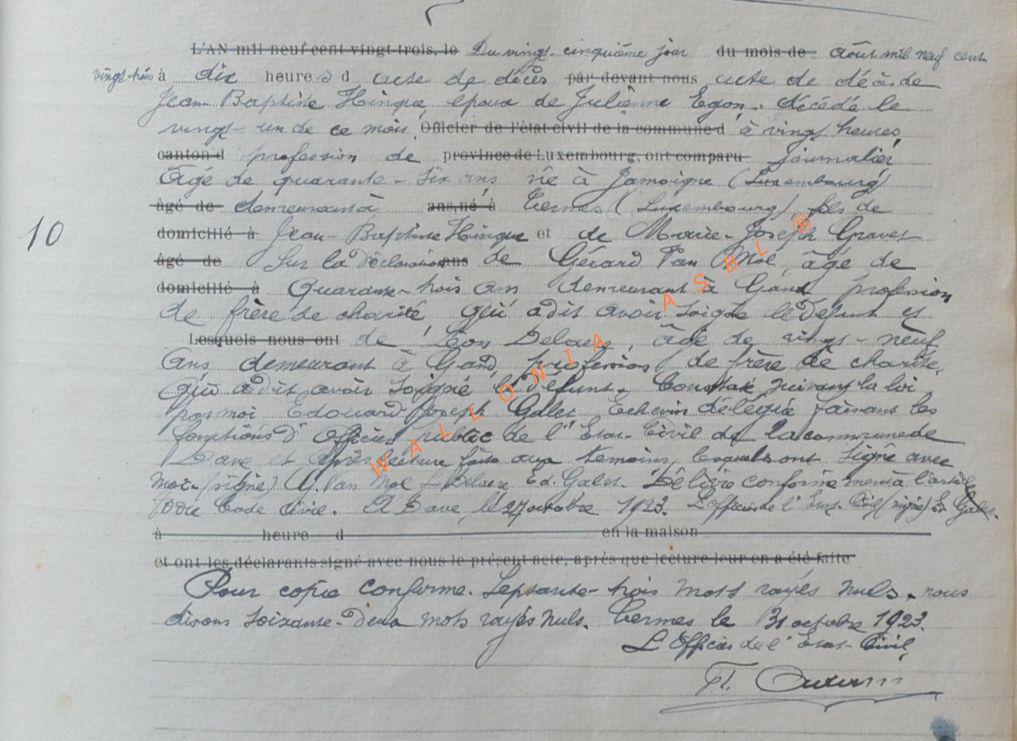 L'AN mil neuf cent vingt-trois, le Du vingt-cinquième jour du mois de août mil neuf cent
vingt-trois à dix heures d acte de décès par devant nous acte de décès de
Jean-Baptiste Hinque, époux de Julienne Egon, décédé le
vingt-un de ce mois, Officier de l'état civil de la commune d à vingt heures,
canton d profession de province de Luxembourg, ont comparu journalier,
Âge de quarante-six ans né à Jamoigne (Luxembourg)
âgé de demeurant à ans, né à Termes (Luxembourg), fils de
10 domicilié à Jean-Baptiste Hinque et de Marie-Joseph Gravet
âgé de Sur la déclaration ans de Gerard Van Mol, âge de
domicilié à Quarante-trois ans demeurant à Gand profession
de frère de charité, qui a dit avoir soigné le défunt et
Lesquels nous ont de Léon Delaere, âge de vingt-neuf
Ans demeurant à Gand, profession de frère de charité,
qui a dit avoir soigné le défunt. Constaté suivant la loi
par moi Edouard Joseph Galet Echevin délégué faisant les
fonctions d'Officier public de l'Etat-Civil de la commune de
Dave et après lecture faite aux témoins, lesquels ont signé avec
moi-(signé) G. Van Mol L. Delaere Ed. Galet. Délivré conformément à l'article
Code Civil. A Dave, le 27 octobre 1923. L'officier de l'Etat-Civil (signé) Ed Galet.
à heure d en la maison
et ont les déclarants signé avec nous le présent acte, après que lecture leur en a été faite
Pour copie conforme. Septante-trois mots rayés nuls, nous
disons soixante-deux mots rayés nuls. Termes le 31 octobre 1923.
L'Officier de l'Etat-Civil,
WALLONIA ASBL ®